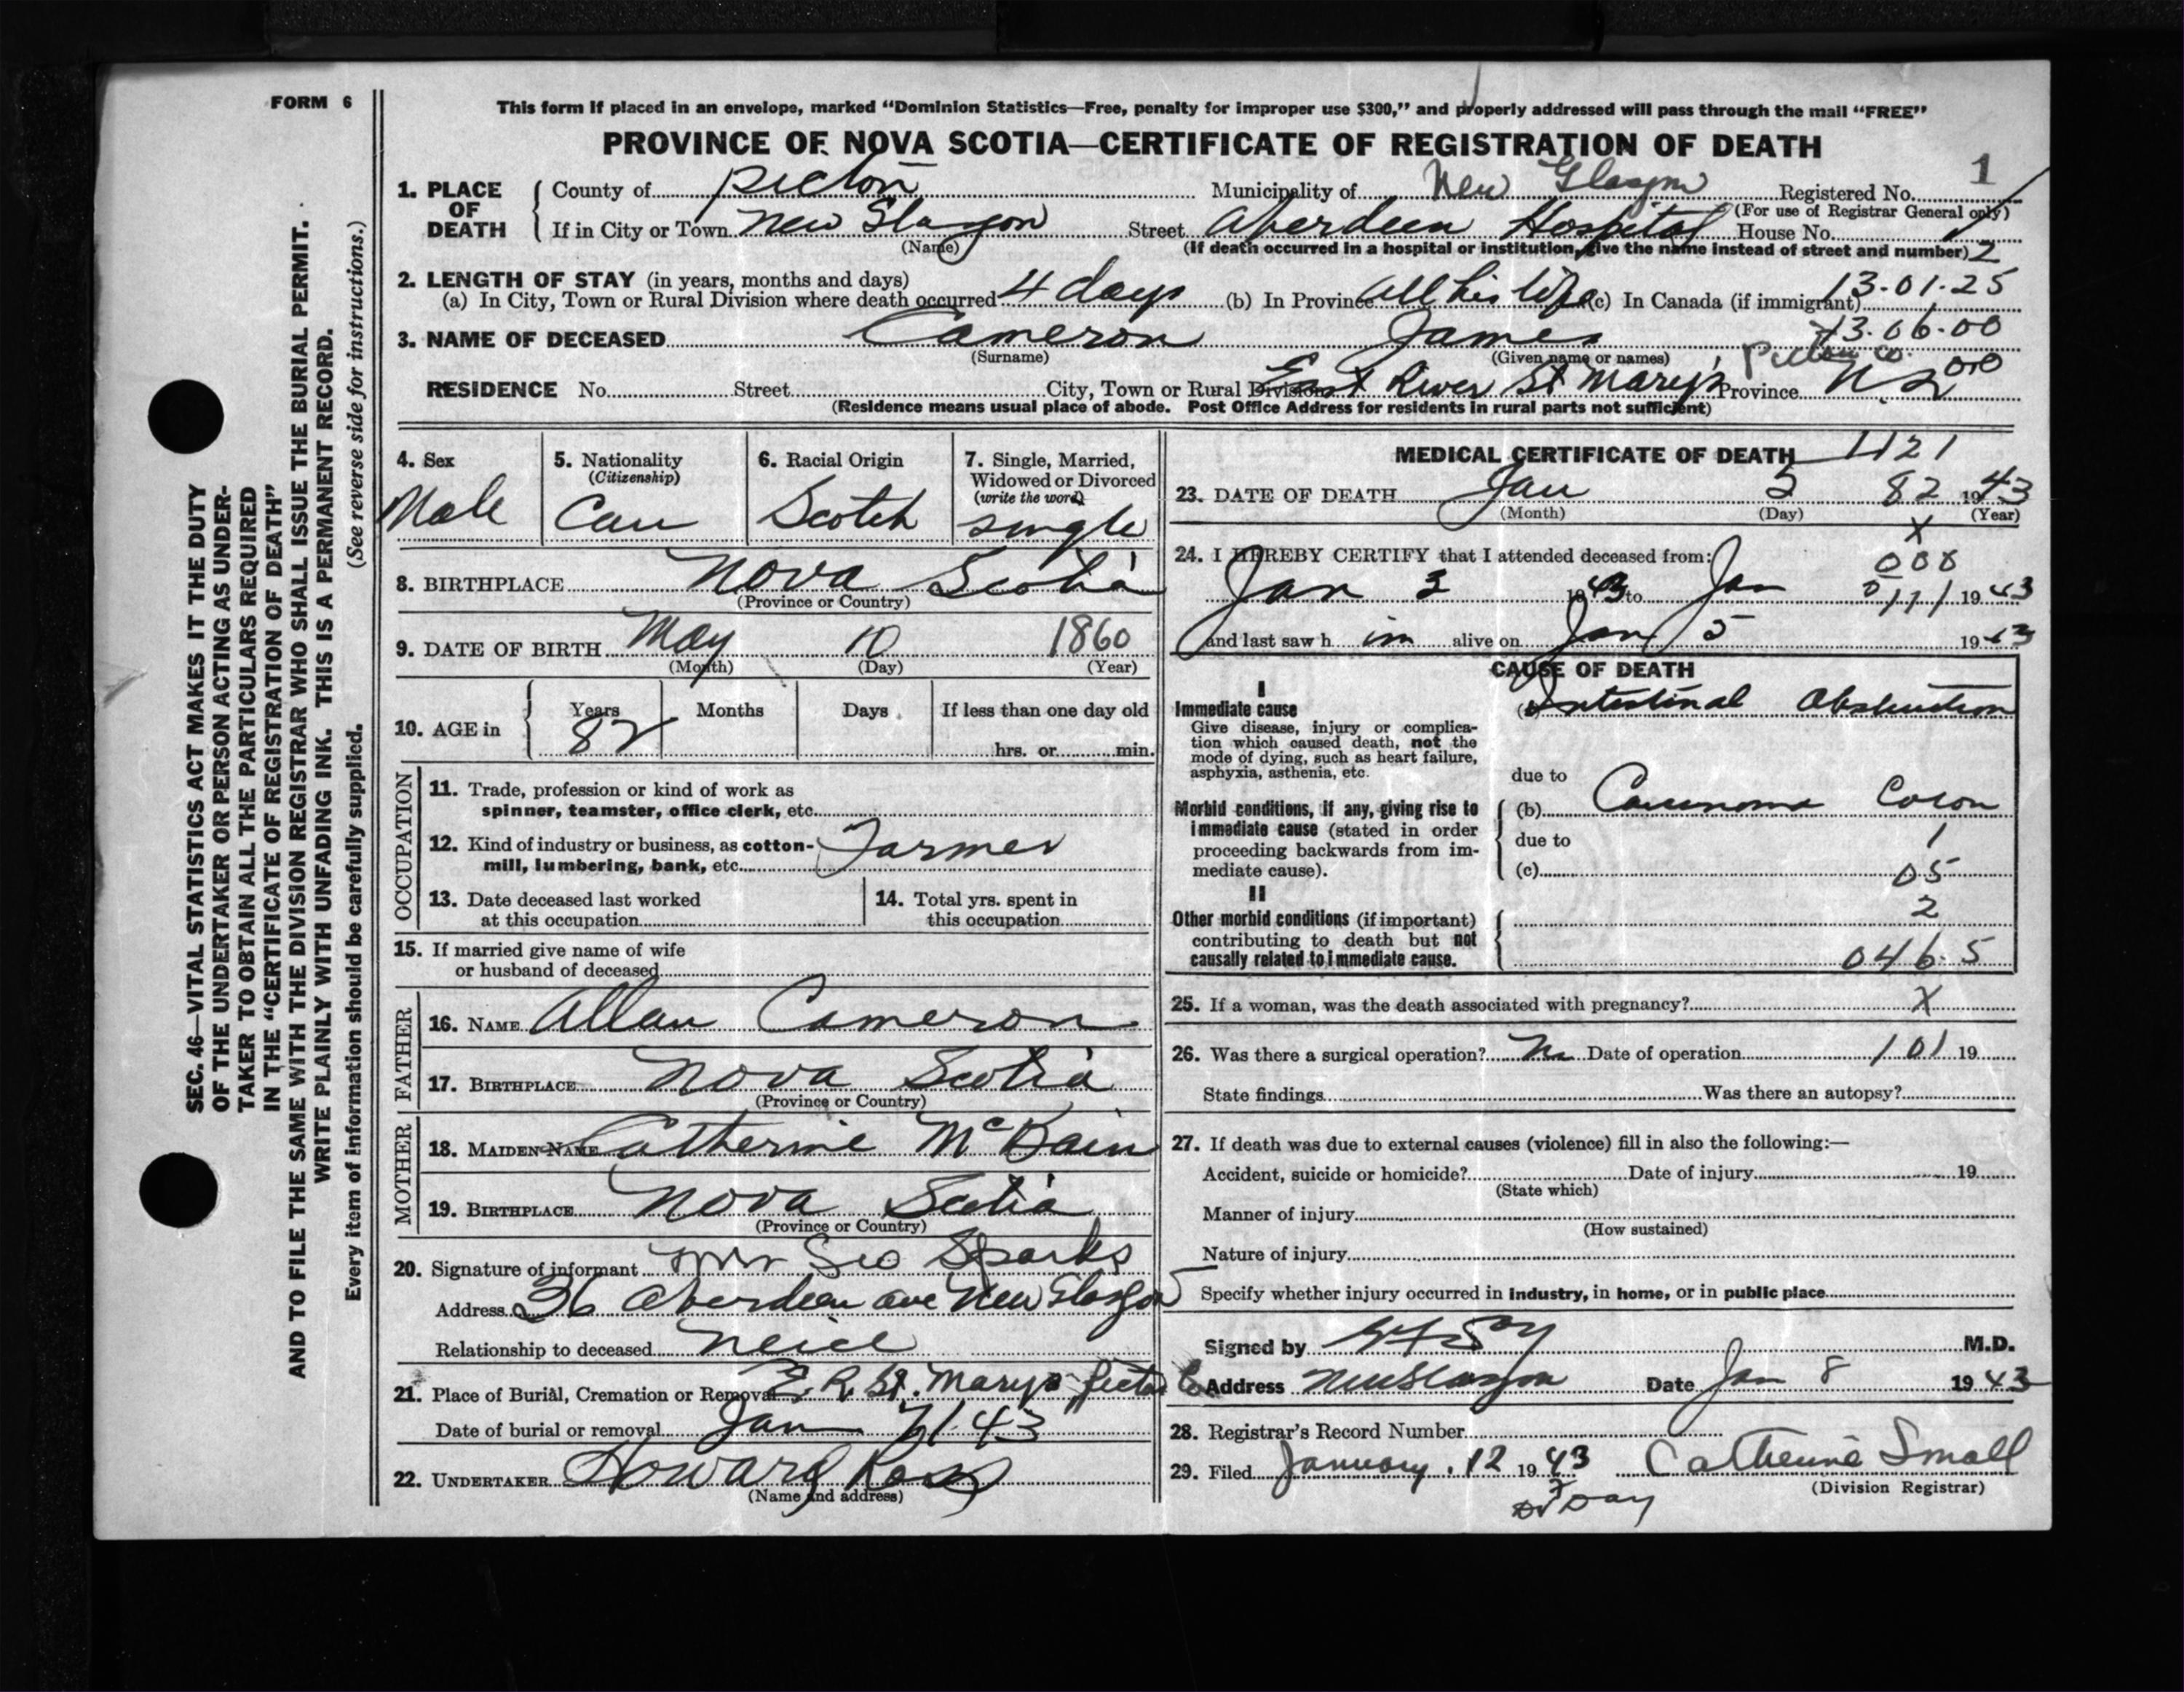 FORM 6
This form if placed in an envelope, marked "Dominion Statistics—Free, penalty for improper use $300," and properly addressed will pass through the mail "FREE"
PROVINCE OF NOVA SCOTIA—CERTIFICATE OF REGISTRATION OF DEATH
1. PLACE OF DEATH
County of Pictou Municipality of New Glasgow Registered No. 1
(For use of Registrar General only)
If in City or Town New Glasgow Street Aberdeen Hospital House No.
(Name) (If death occurred in a hospital or institution, give the name instead of street and number) 2
2. LENGTH OF STAY (in years, months and days)
(a) In City, Town or Rural Division where death occurred 4 days (b) In Province All his life (c) In Canada (if immigrant) 13.01.25
3. NAME OF DECEASED Cameron James 13.06.00
(Surname) (Given name or names) Pictou Co.
RESIDENCE No. Street City, Town or Rural Division East River St Mary's Province N.S. 010
(Residence means usual place of abode. Post Office Address for residents in rural parts not sufficient)
4. Sex
Male
5. Nationality
(Citizenship)
Can
6. Racial Origin
Scotch
7. Single, Married,
Widowed or Divorced
(write the word)
single
8. BIRTHPLACE Nova Scotia
(Province or Country)
9. DATE OF BIRTH May 10 1860
(Month) (Day) (Year)
10. AGE in
Years Months Days If less than one day old
82 hrs. or min.
OCCUPATION
11. Trade, profession or kind of work as
spinner, teamster, office clerk, etc.
12. Kind of industry or business, as cotton-
mill, lumbering, bank, etc. Farmer
13. Date deceased last worked
at this occupation
14. Total yrs. spent in
this occupation
15. If married give name of wife
or husband of deceased
FATHER
16. NAME Allan Cameron
17. BIRTHPLACE Nova Scotia
(Province or Country)
MOTHER
18. MAIDEN NAME Catherine McBain
19. BIRTHPLACE Nova Scotia
(Province or Country)
20. Signature of informant Mrs Geo Sparks
Address 36 Aberdeen ave New Glasgow
Relationship to deceased Neice
21. Place of Burial, Cremation or Removal E. R. St. Marys Pictou Co
Date of burial or removal Jan 7/43
22. UNDERTAKER Howard Ross
(Name and address)
MEDICAL CERTIFICATE OF DEATH 1121
23. DATE OF DEATH Jan 5 82 1943
(Month) (Day) (Year)
X
24. I HEREBY CERTIFY that I attended deceased from:
Jan 3 1943 to Jan 5 1943
and last saw him alive on Jan 5 1943
CAUSE OF DEATH
I
Immediate cause
Give disease, injury or complica-
tion which caused death, not the
mode of dying, such as heart failure,
asphyxia, asthenia, etc.
(a) Intestinal Obstruction
due to
Morbid conditions, if any, giving rise to
immediate cause (stated in order
proceeding backwards from im-
mediate cause).
(b) Carcinoma Colon
due to 1
(c) 05
II
Other morbid conditions (if important)
contributing to death but not
causally related to immediate cause.
2
046.5
25. If a woman, was the death associated with pregnancy? X
26. Was there a surgical operation? No Date of operation 101 19
State findings Was there an autopsy?
27. If death was due to external causes (violence) fill in also the following:—
Accident, suicide or homicide? Date of injury 19
(State which)
Manner of injury
(How sustained)
Nature of injury
Specify whether injury occurred in industry, in home, or in public place
Signed by M.D.
Address New Glasgow Date Jan 8 1943
28. Registrar's Record Number
29. Filed January 12 1943 Catherine Small
(Division Registrar)
Dr Day
SEC. 46—VITAL STATISTICS ACT MAKES IT THE DUTY
OF THE UNDERTAKER OR PERSON ACTING AS UNDER-
TAKER TO OBTAIN ALL THE PARTICULARS REQUIRED
IN THE "CERTIFICATE OF REGISTRATION OF DEATH"
AND TO FILE THE SAME WITH THE DIVISION REGISTRAR WHO SHALL ISSUE THE BURIAL PERMIT.
WRITE PLAINLY WITH UNFADING INK. THIS IS A PERMANENT RECORD.
Every item of information should be carefully supplied. (See reverse side for instructions.)